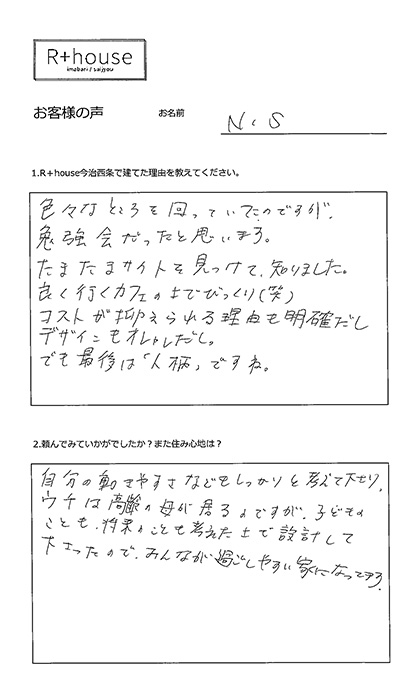 R+house
imabari / saijyou
お客様の声
お名前
N・S
1.R＋house今治西条で建てた理由を教えてください。
色々なところを回っていたのですが、
勉強会だったと思います。
たまたまサイトを見つけて、知りました。
良く行くカフェの上でびっくり(笑)
コストが抑えられる理由も明確だし
デザインもオシャレだし。
でも最後は「人柄」ですね。
2.頼んでみていかがでしたか？また住み心地は？
自分の動きやすさなどもしっかりと考えて下さり、
ウチは高齢の母が居るのですが、子どもの
ことも、将来のことも考えた上で設計して
下さったので、みんなが過ごしやすい家になってます。